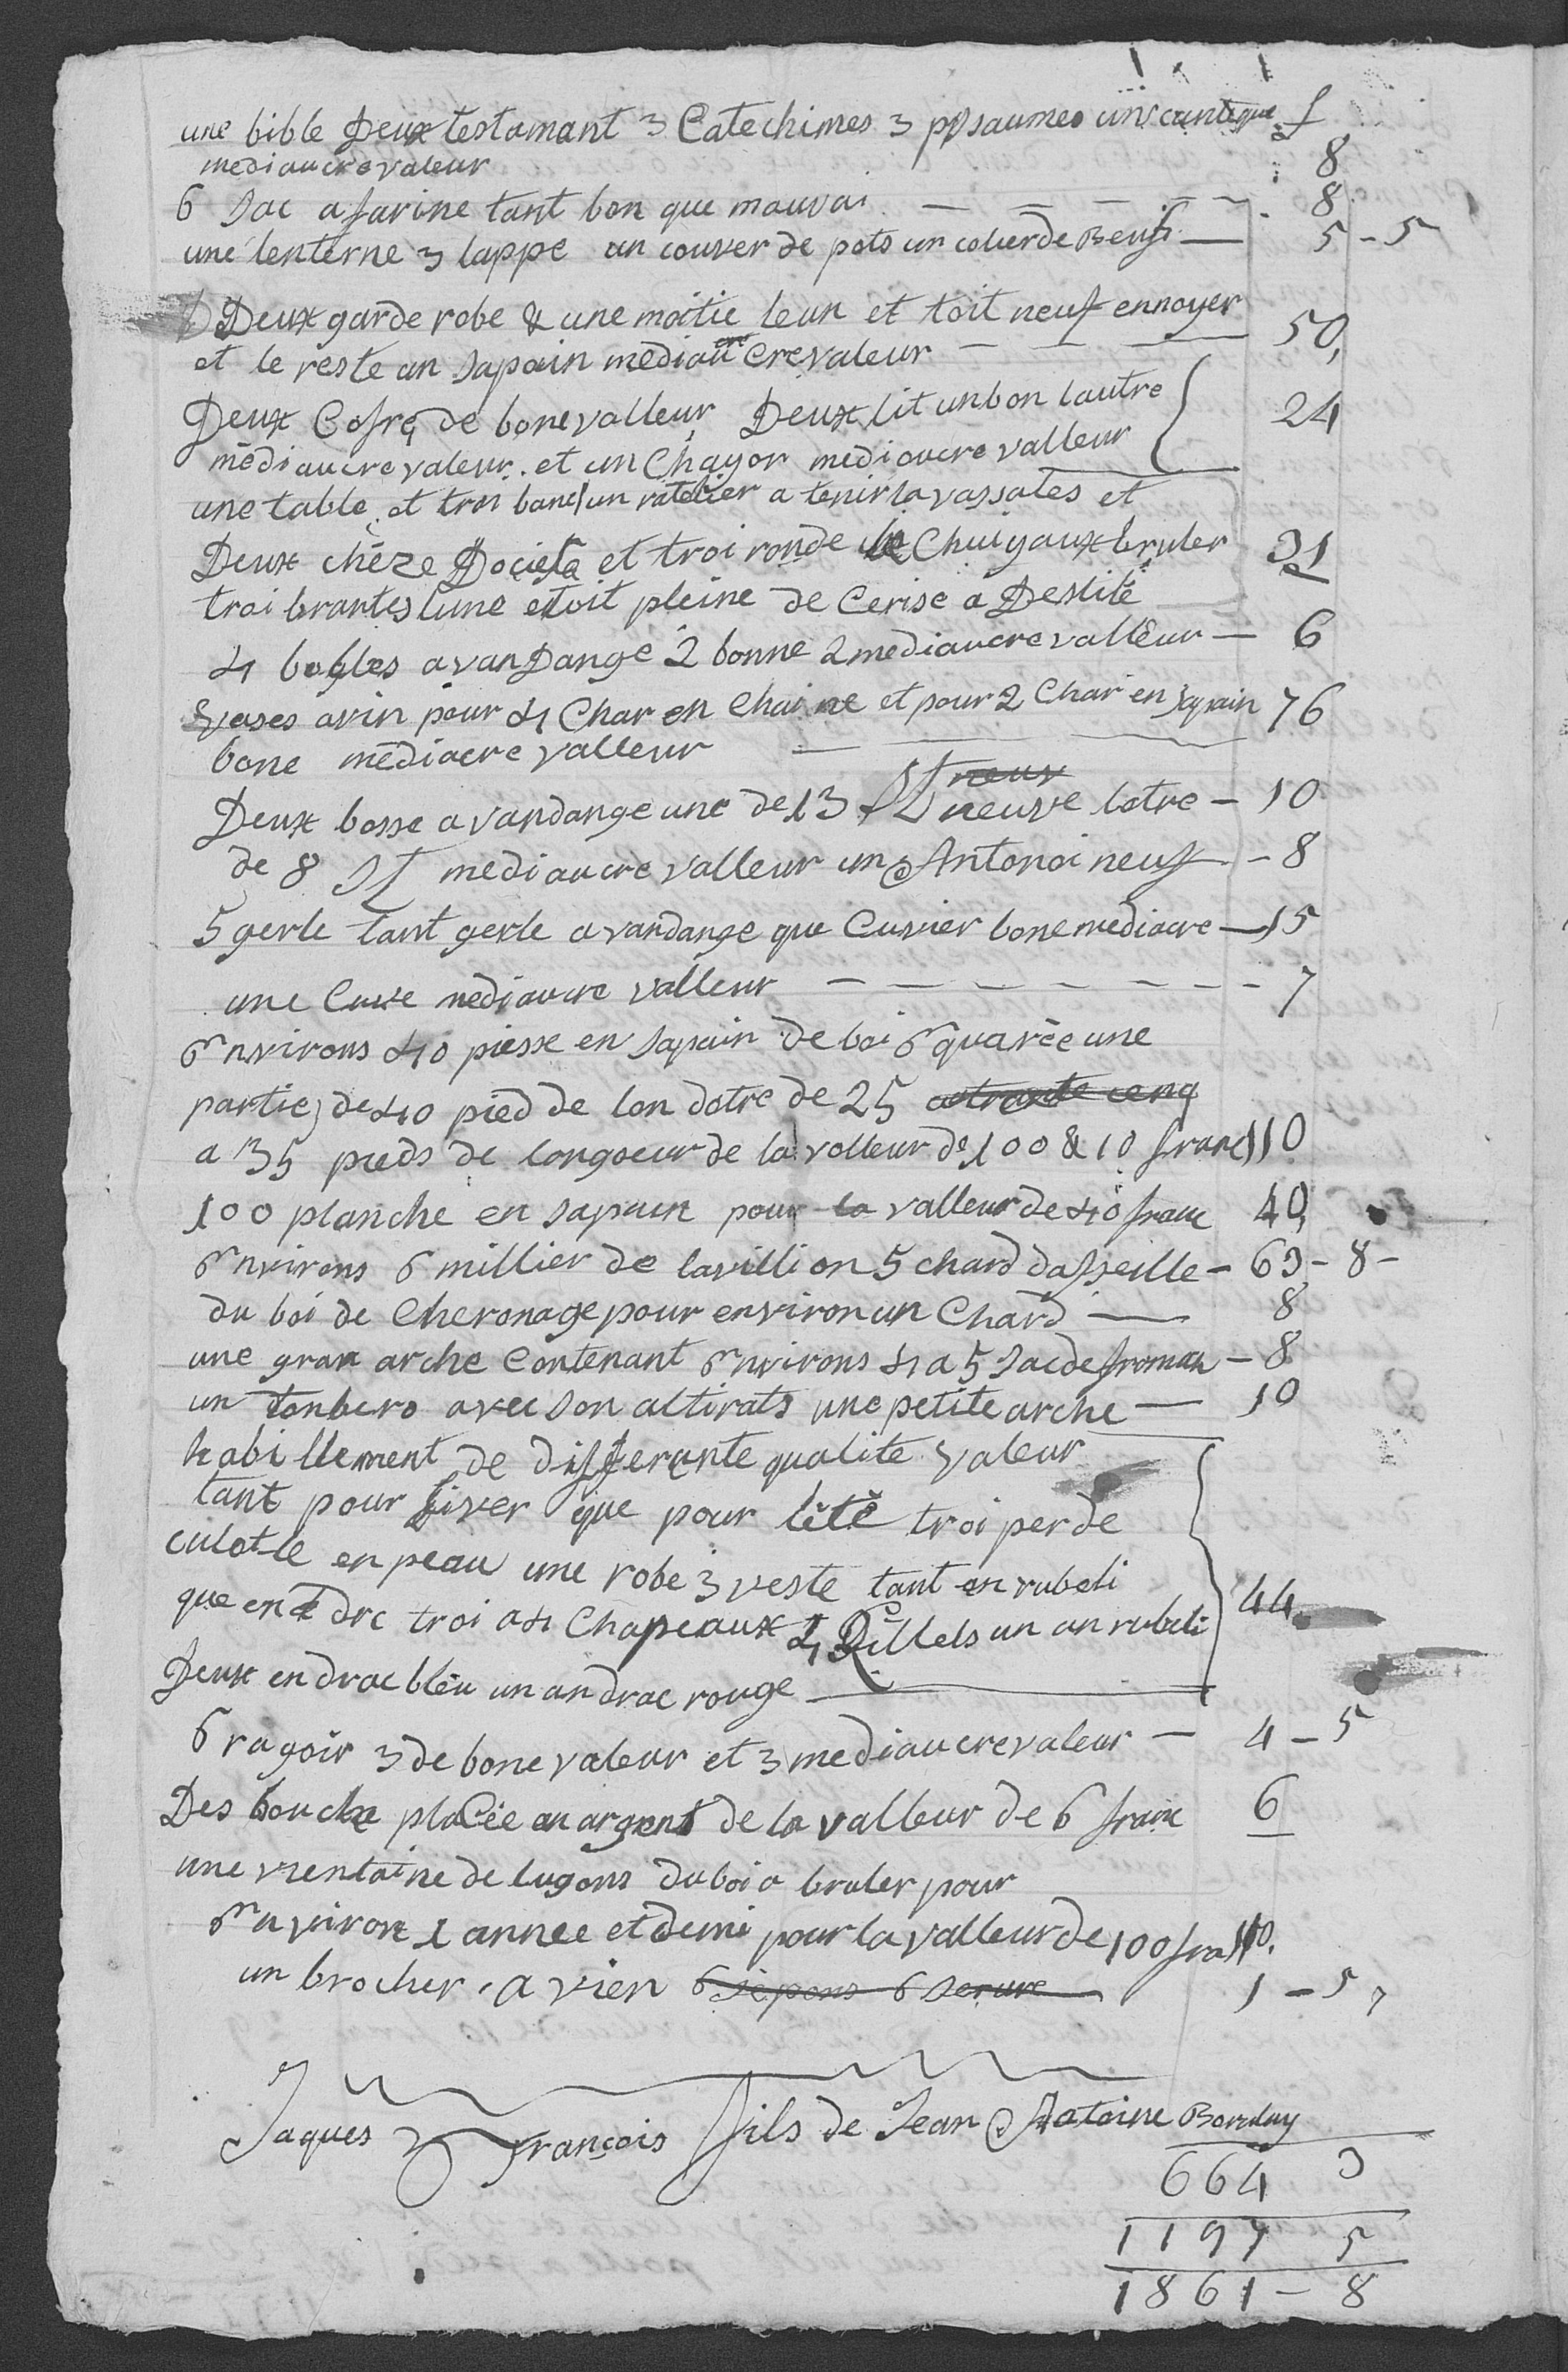 une bible Deux testamant 3 Catechimes 3 ppsaumes un cantique f
mediaucre valeur 8
6 Sac a farine tant bon que mauvai — — — — 8
une lenterne 3 lappe un couver de pots un colier de Beuf — 5 - 5
Deux garde robe & une moitie leun et toit neuf ennoyer
et le reste an Sapain mediaucre valeur — — — 50,
Deux Cofre de bone valleur Deux lit un bon lautre 24
mediaucre valeur. et un Chayor mediaucre valleur
une table et troi banc un ratelier a tenir la vassales et
Deux chéze Docieta et troi ronde Chuigaux bruler 21
troi brantes lune etoit pleine de Cerise a Destilé
4 bogles a vandange 2 bonne 2 mediaucre valleur — 6
vases a vin pour 4 Char en Chaine et pour 2 Char en Sapain 76
bone mediacre valleur — — — —
Deux bosse a vandange une de 13 St neuve lotre — 10
de 8 St mediaucre valleur un Antonoi neuf — 8
5 gerle tant gerle a vandange que Cuvier bone mediacre — 15
une Cuve mediaucre valleur — — — — — — — 7
Environs 40 piesse en Sapain de boi équarée une
partie de 40 pied de lon dotre de 25 a trante cenq
a 35 pieds de longoeur de la valleur de 100 & 10 franc 110
100 planche en sapain pour la valleur de 40 franc 40,
Environs 6 millier de lavillion 5 chard dasseille — 63 - 8 -
du boi de Cheronage pour environ un Chard — 8
une gran arche Contenant Environs 4 a 5 Sac de froman — 8
un Tonbero avec Son attirats une petite arche — 10
habillement de differante qualite valeur
tant pour hiver que pour lété troi per de
culotte en peau une robe 3 veste tant en rubeli
que en drc troi a 4 Chapeaux 4 Gillets un an rubeli 44
Deux en drac bleu un an drac rouge
6 ragoir 3 de bone valeur et 3 mediaucre valeur — 4 - 5
Des boucle placée an argent de la valleur de 6 franc 6
une vrentaine de lugons du boi a bruler pour
Environ 1 annee et demi pour la valleur de 100 fra 110.
un brocher a vien 6 Sepons 6 Serure 1 - 5 7
Jaques François fils de Jean Antoine Bourday
664 3
1197 5
1861 - 8